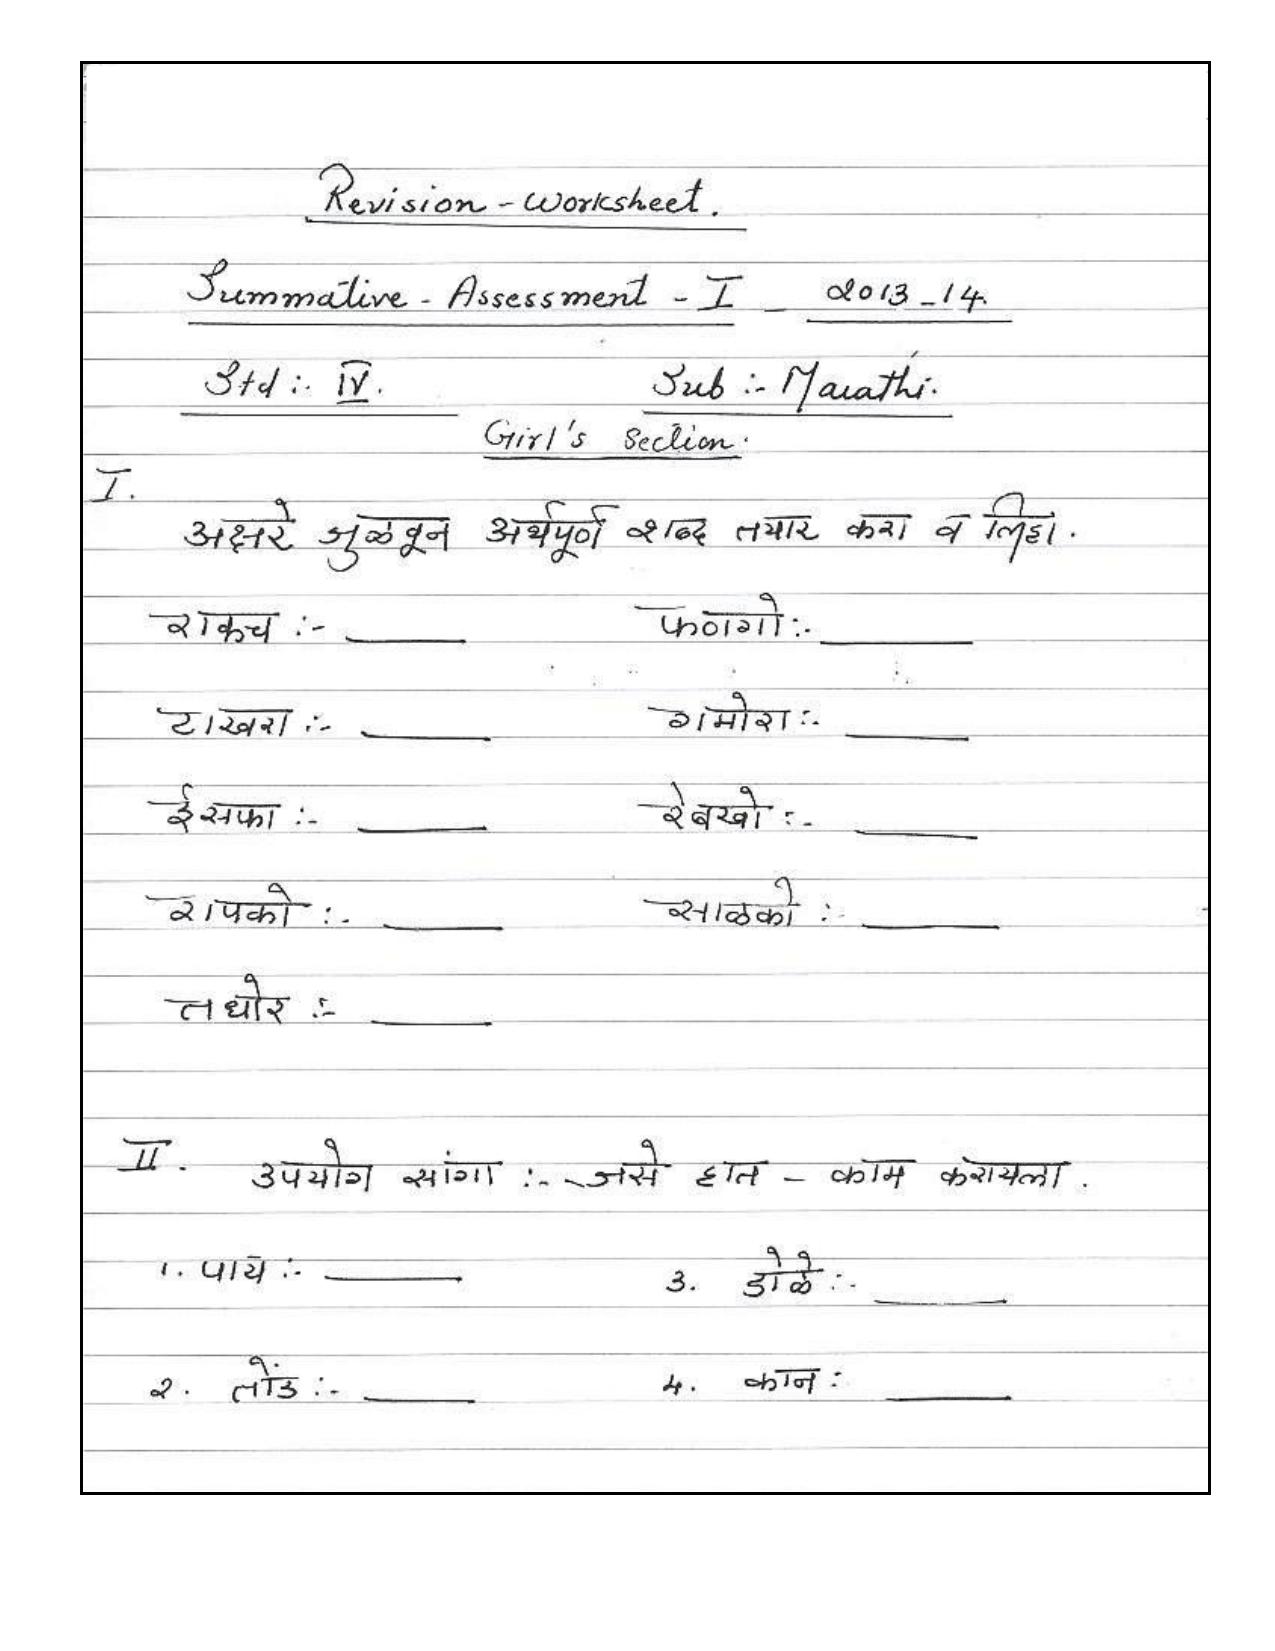 Revision - Worksheet.
Summative - Assessment - I - 2013-14.
Std :- IV. Sub :- Marathi.
Girl's Section.
I.
अक्षरे जुळवून अर्थपूर्ण शब्द तयार करा व लिहा.
राकच :- ____ फळागो :- ____
टाखरा :- ____ गमोरा :- ____
ईसफा :- ____ रेबखो :- ____
रापको :- ____ साळको :- ____
तधोर :- ____
II. उपयोग सांगा :- जसे हात - काम करायला.
१. पाय :- ____ 3. डोळे :- ____
२. तोंड :- ____ 4. कान : ____